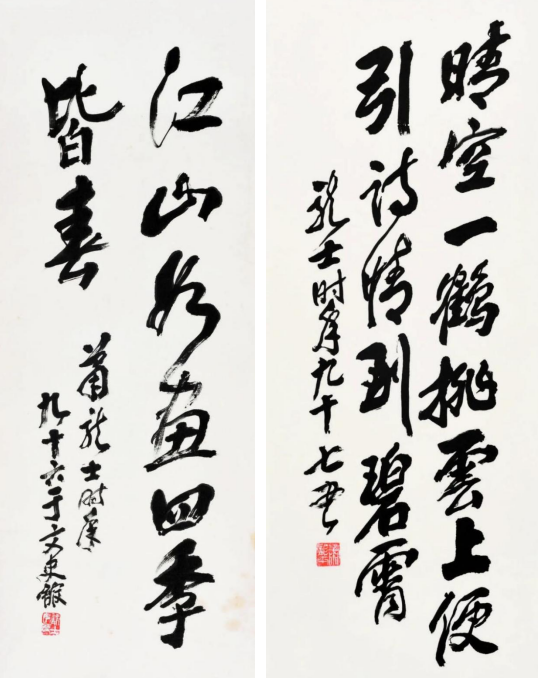 晴空一鶴排雲上便
引诗情到碧霄
龙士时年九十七书
江山如畫四季
皆春
蕭龙士时年
九十六于文史館